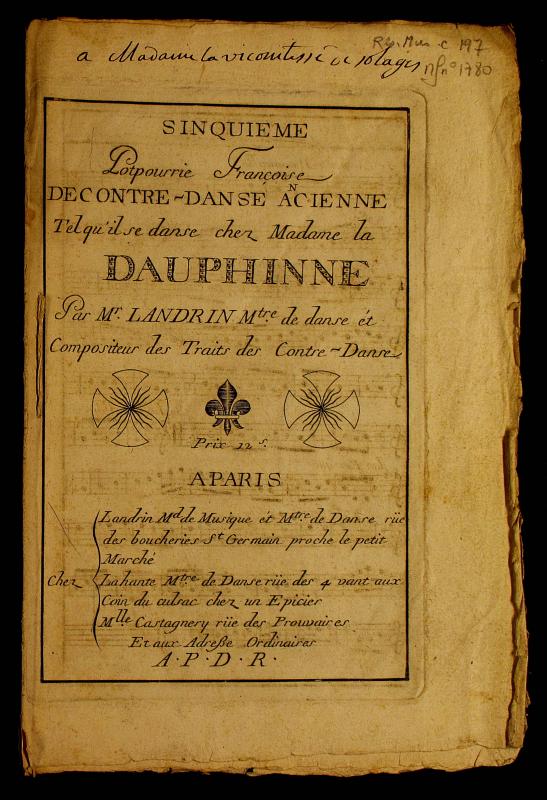 a Madame la vicomtesse de solages
Rés. Mus. c 197
nf nº 1780
SINQUIEME
Potpourrie Françoise
DE CONTRE-DANSE ANCIENNE
Tel qu'il se danse chez Madame la
DAUPHINNE
Par Mr. LANDRIN Mtre. de danse ét
Compositeur des Traits des Contre-Danse
Prix 12 s.
A PARIS
Landrin Md de Musique ét Mtre. de Danse rüe
des boucheries St Germain proche le petit
Marché
Chez
Lahante Mtre. de Danse rüe des 4 vant aux
Coin du culsac chez un Epicier
Mlle Castagnery rüe des Prouvaires
Et aux Adreße Ordinaires
A·P·D·R·